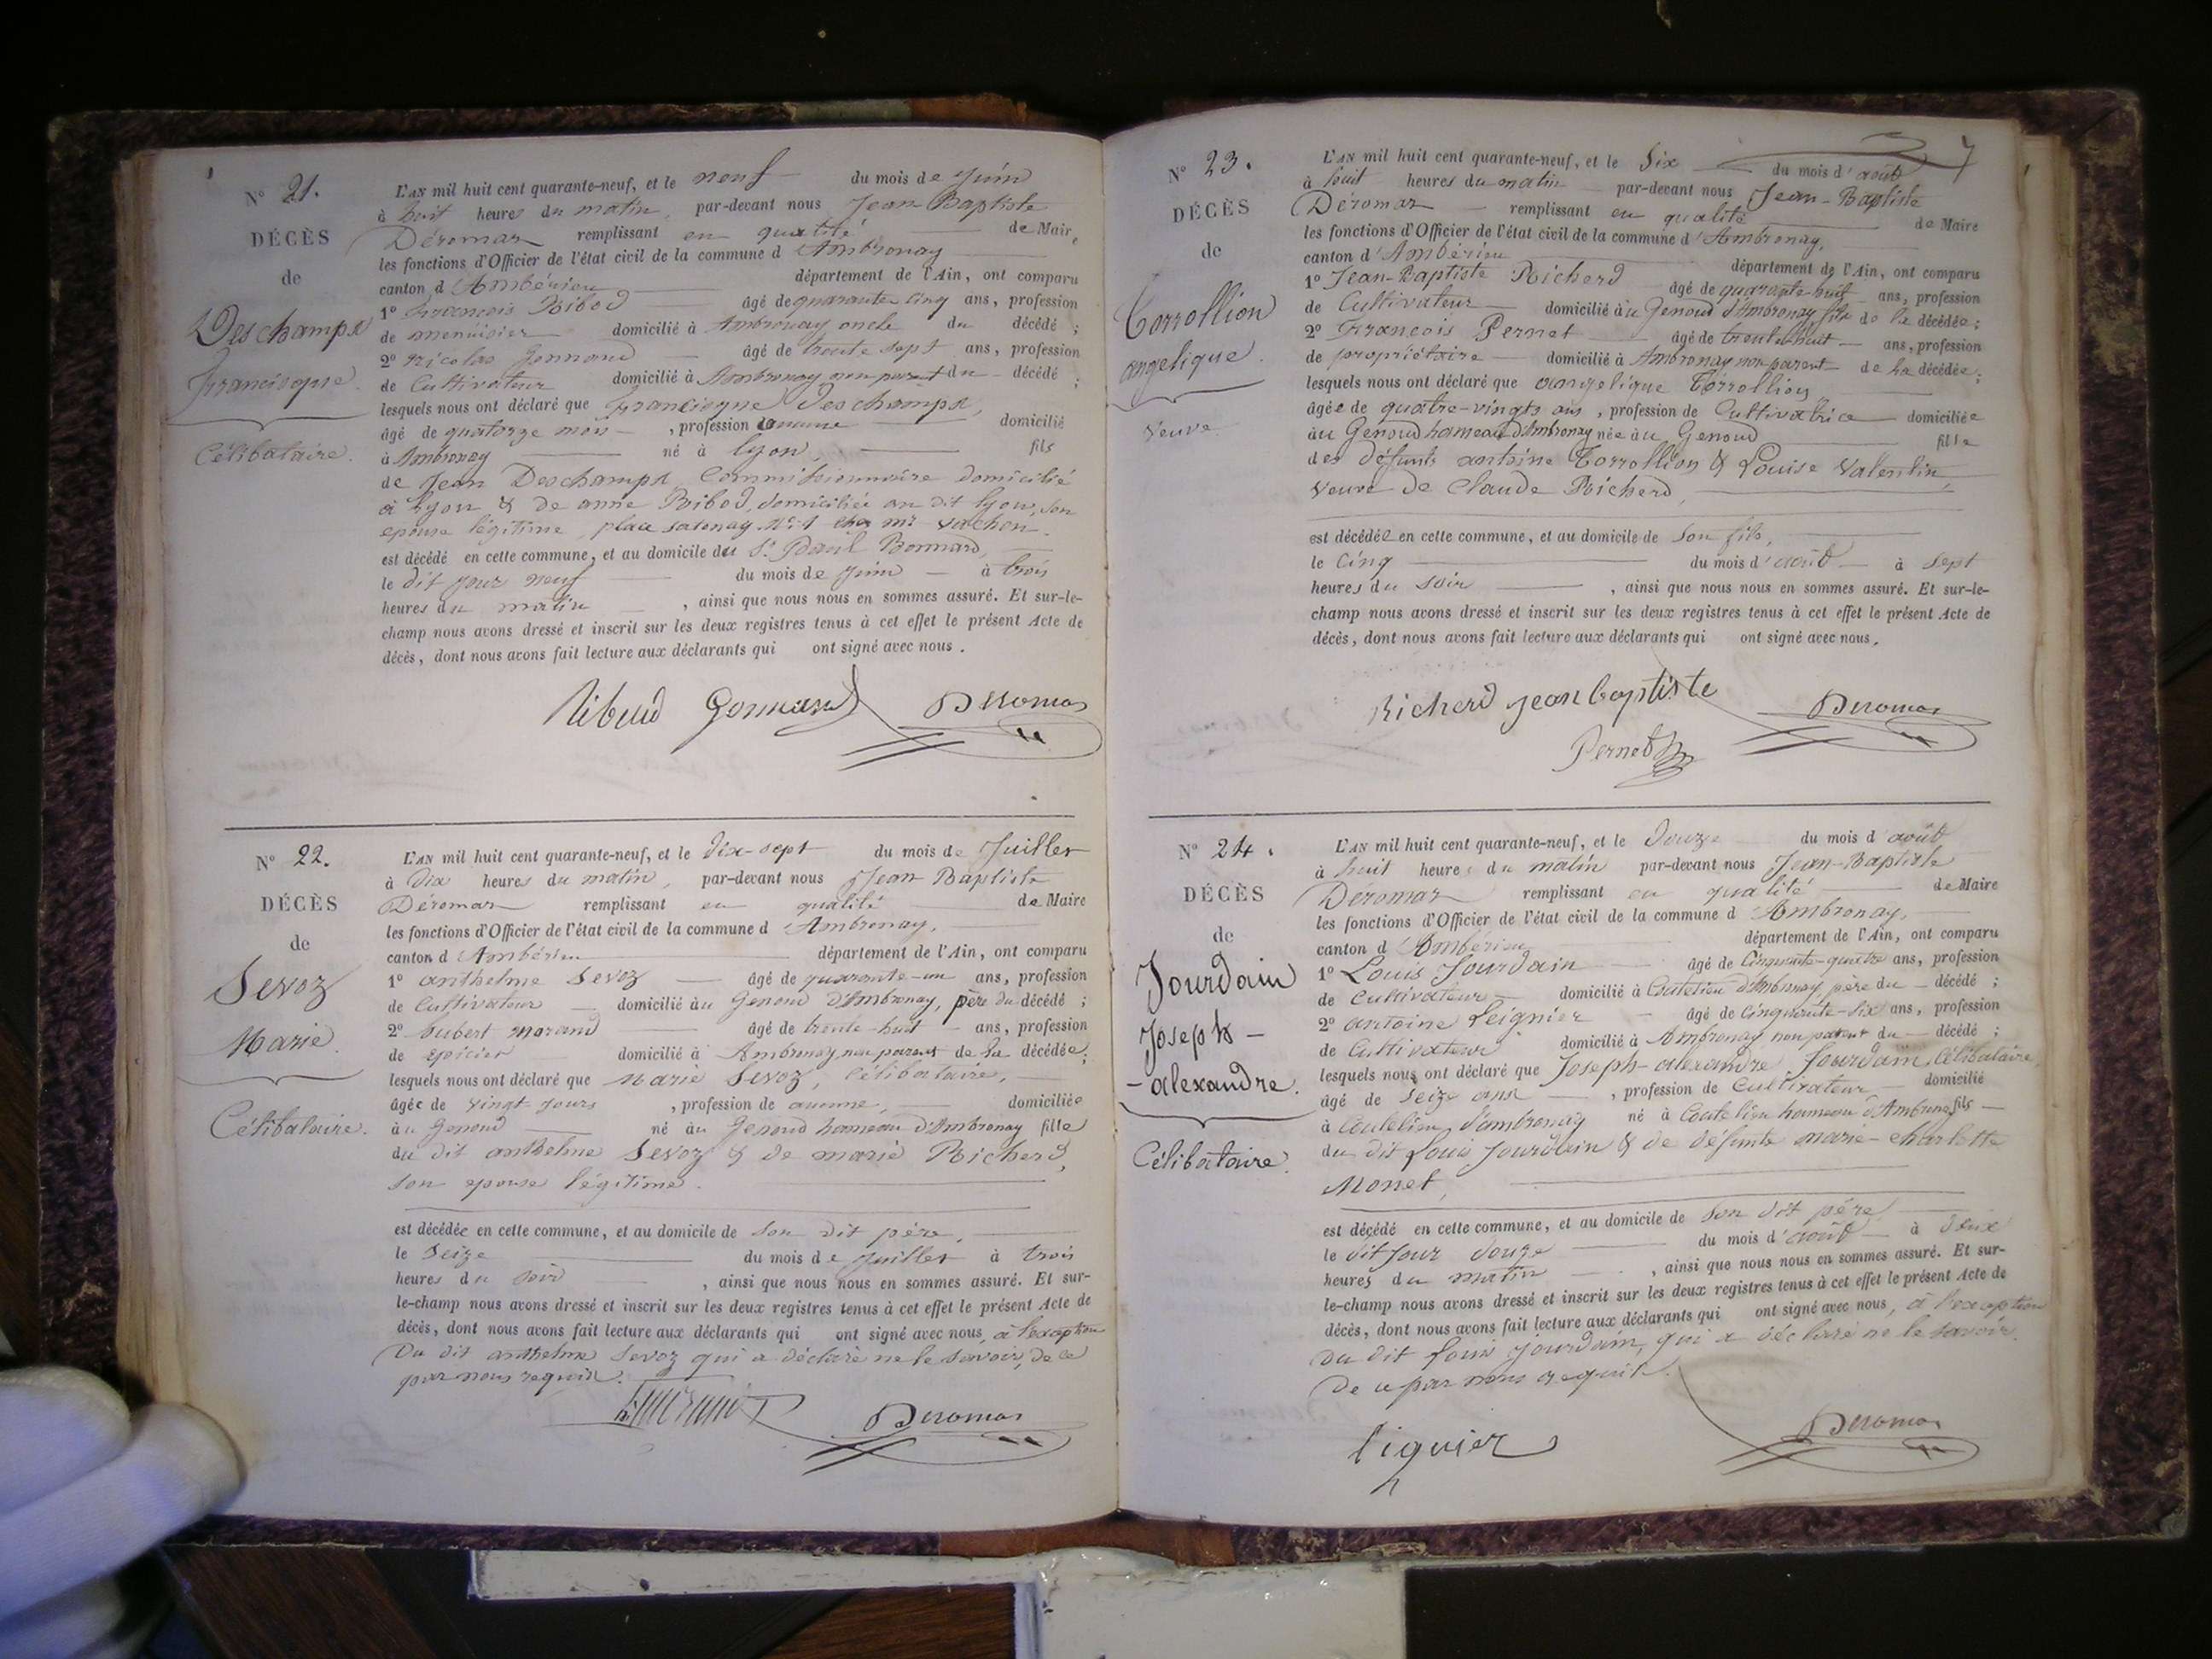 N° 21.
DÉCÈS
de
Deschamps
Francisque.
Célibataire.
L'AN mil huit cent quarante-neuf, et le neuf du mois de juin
à huit heures du matin, par-devant nous Jean-Baptiste
Déromas remplissant en qualité de Maire
les fonctions d'Officier de l'état civil de la commune d'Ambronay
canton d'Ambérieu département de l'Ain, ont comparu
1° François Ribod âgé de quarante cinq ans, profession
de menuisier domicilié à Ambronay oncle du décédé ;
2° Nicolas Gonnand âgé de trente sept ans, profession
de Cultivateur domicilié à Ambronay non parent du décédé ;
lesquels nous ont déclaré que Francisque Deschamps,
âgé de quatorze mois, profession aucune domicilié
à Ambronay né à Lyon, fils
de Jean Deschamps Commissionnaire domicilié
à Lyon & de anne Ribod, domiciliée au dit Lyon, son
epouse légitime, place satonay N° 1 chez mr vachon.
est décédé en cette commune, et au domicile du Sr. Paul Bonnard,
le dit jour neuf du mois de juin à trois
heures du matin, ainsi que nous nous en sommes assuré. Et sur-le-
champ nous avons dressé et inscrit sur les deux registres tenus à cet effet le présent Acte de
décès, dont nous avons fait lecture aux déclarants qui ont signé avec nous.
Ribaud Gonnand Deromas
N° 22.
DÉCÈS
de
Sevoz
Marie.
Célibataire.
L'AN mil huit cent quarante-neuf, et le dix-sept du mois de Juillet
à dix heures du matin, par-devant nous Jean-Baptiste
Déromas remplissant en qualité de Maire
les fonctions d'Officier de l'état civil de la commune d'Ambronay,
canton d'Ambérieu département de l'Ain, ont comparu
1° anthelme Sevoz âgé de quarante-un ans, profession
de Cultivateur domicilié au Genoud d'Ambronay, père du décédé ;
2° hubert morand âgé de trente-huit ans, profession
de epicier domicilié à Ambronay non parent de la décédée ;
lesquels nous ont déclaré que Marie Sevoz, Célibataire,
âgée de vingt jours, profession de aucune, domiciliée
au Genoud né au Genoud hameau d'Ambronay fille
du dit anthelme Sevoz & de marie Richerd,
son epouse légitime.
est décédée en cette commune, et au domicile de son dit père,
le Seize du mois de juillet à trois
heures du soir, ainsi que nous nous en sommes assuré. Et sur-
le-champ nous avons dressé et inscrit sur les deux registres tenus à cet effet le présent Acte de
décès, dont nous avons fait lecture aux déclarants qui ont signé avec nous, à l'exception
Du dit anthelme Sevoz qui a déclaré ne le savoir, de ce
par nous requis.
Deromas
7
N° 23.
DÉCÈS
de
Corrollion
angelique.
Veuve
L'AN mil huit cent quarante-neuf, et le Six du mois d'août
à huit heures du matin par-devant nous Jean-Baptiste
Déromas remplissant en qualité de Maire
les fonctions d'Officier de l'état civil de la commune d'Ambronay,
canton d'Ambérieu département de l'Ain, ont comparu
1° Jean-Baptiste Richerd âgé de quarante-huit ans, profession
de Cultivateur domicilié au Genoud d'Ambronay fils de la décédée ;
2° François Pernet âgé de trente-huit ans, profession
de propriétaire domicilié à Ambronay non parent de la décédée ;
lesquels nous ont déclaré que angelique Corrollion
âgée de quatre-vingts ans, profession de Cultivatrice domiciliée
au Genoud hameau d'Ambronay née au Genoud fille
des défunts antoine Corrollion & Louise Valentin,
veuve de Claude Richerd,
est décédée en cette commune, et au domicile de son fils,
le Cinq du mois d'août à sept
heures du soir, ainsi que nous nous en sommes assuré. Et sur-le-
champ nous avons dressé et inscrit sur les deux registres tenus à cet effet le présent Acte de
décès, dont nous avons fait lecture aux déclarants qui ont signé avec nous.
Richerd jean baptiste Deromas
Pernet
N° 24.
DÉCÈS
de
Jourdain
Joseph-
-alexandre.
Célibataire.
L'AN mil huit cent quarante-neuf, et le Douze du mois d'août
à huit heures du matin par-devant nous Jean-Baptiste
Déromas remplissant en qualité de Maire
les fonctions d'Officier de l'état civil de la commune d'Ambronay,
canton d'Ambérieu département de l'Ain, ont comparu
1° Louis Jourdain âgé de Cinquante-quatre ans, profession
de Cultivateur domicilié à Coutelieu d'Ambronay père du décédé ;
2° antoine Leignier âgé de Cinquante-six ans, profession
de Cultivateur domicilié à Ambronay non parent du décédé ;
lesquels nous ont déclaré que Joseph-alexandre Jourdain, Célibataire
âgé de seize ans, profession de Cultivateur domicilié
à Coutelieu d'ambronay né à Coutelieu hameau d'Ambronay fils
du dit Louis Jourdain & de défunte marie-charlotte
Monet,
est décédé en cette commune, et au domicile de son dit père
le dit jour douze du mois d'août à deux
heures du matin, ainsi que nous nous en sommes assuré. Et sur-
le-champ nous avons dressé et inscrit sur les deux registres tenus à cet effet le présent Acte de
décès, dont nous avons fait lecture aux déclarants qui ont signé avec nous, à l'exception
Du dit Louis Jourdain, qui a déclaré ne le savoir,
De ce par nous requis.
Liguier Deromas